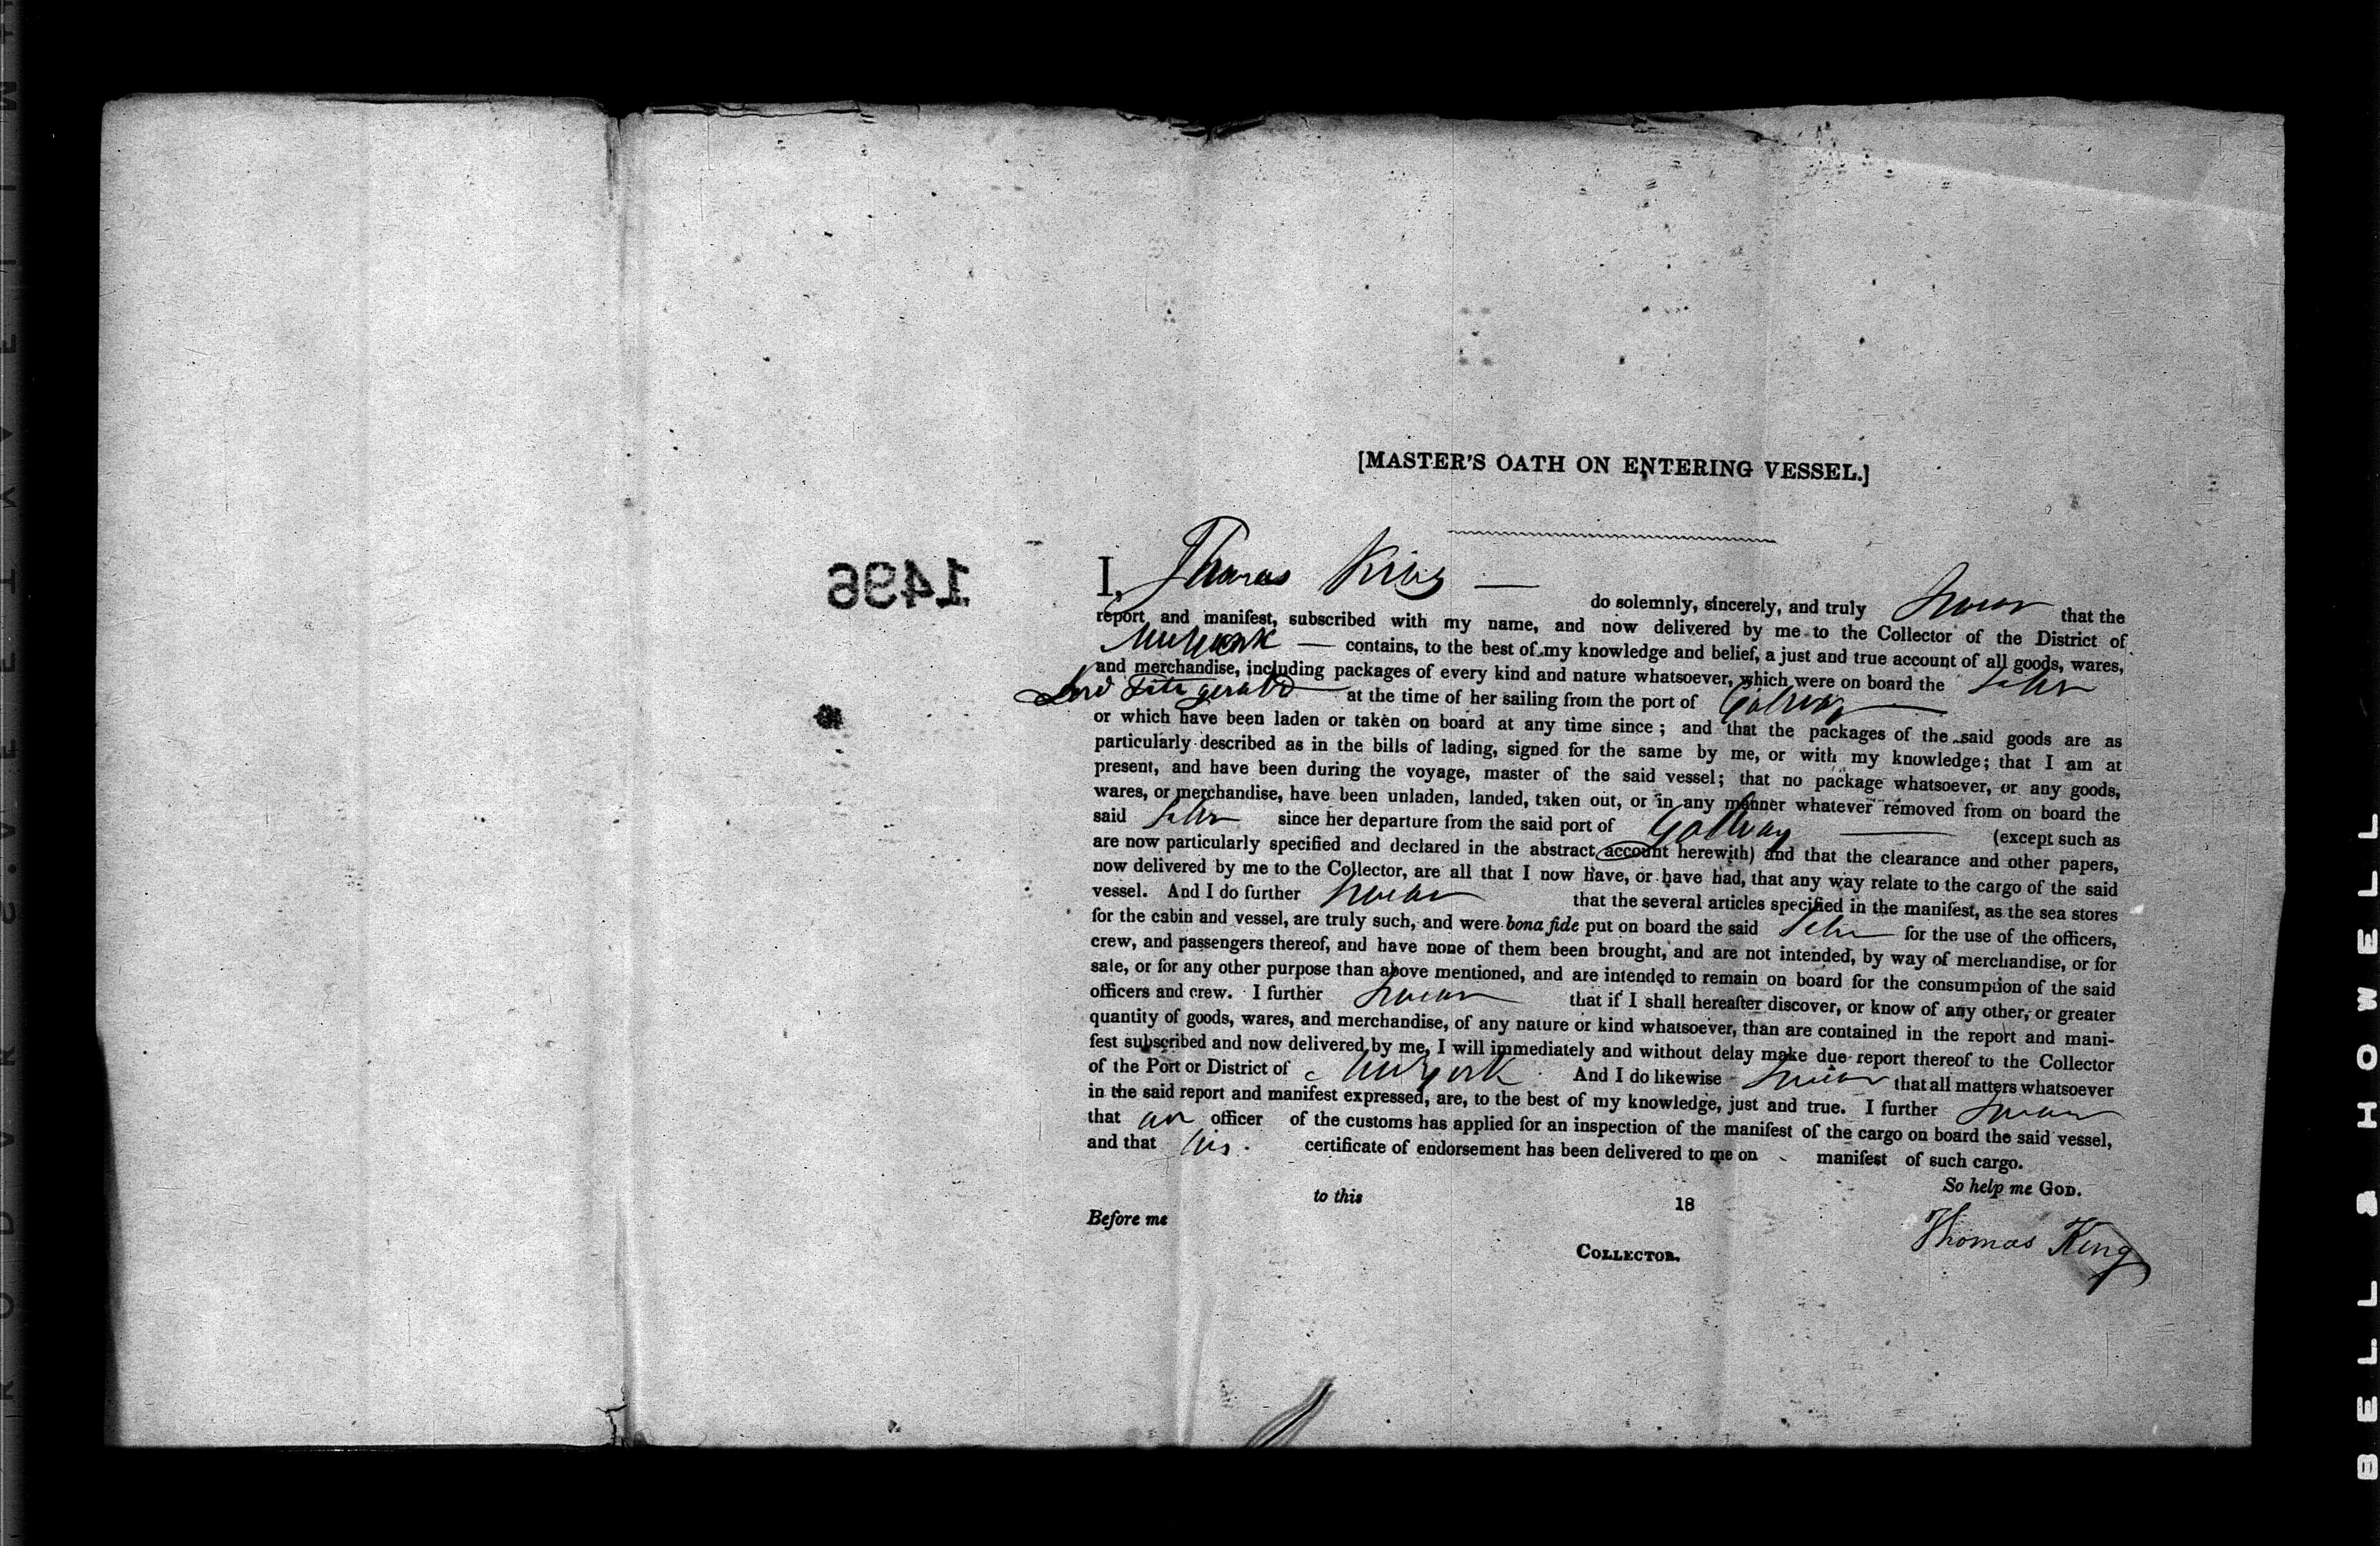 [MASTER'S OATH ON ENTERING VESSEL.]
1496
I, Thomas King — do solemnly, sincerely, and truly Swear that the
report and manifest, subscribed with my name, and now delivered by me to the Collector of the District of
New York — contains, to the best of my knowledge and belief, a just and true account of all goods, wares,
and merchandise, including packages of every kind and nature whatsoever, which were on board the Schr
Lord Fitzgerald at the time of her sailing from the port of Galway —
or which have been laden or taken on board at any time since; and that the packages of the said goods are as
particularly described as in the bills of lading, signed for the same by me, or with my knowledge; that I am at
present, and have been during the voyage, master of the said vessel; that no package whatsoever, or any goods,
wares, or merchandise, have been unladen, landed, taken out, or in any manner whatever removed from on board the
said Schr since her departure from the said port of Galway — (except such as
are now particularly specified and declared in the abstract account herewith) and that the clearance and other papers,
now delivered by me to the Collector, are all that I now have, or have had, that any way relate to the cargo of the said
vessel. And I do further Swear that the several articles specified in the manifest, as the sea stores
for the cabin and vessel, are truly such, and were bona fide put on board the said Schr for the use of the officers,
crew, and passengers thereof, and have none of them been brought, and are not intended, by way of merchandise, or for
sale, or for any other purpose than above mentioned, and are intended to remain on board for the consumption of the said
officers and crew. I further Swear that if I shall hereafter discover, or know of any other, or greater
quantity of goods, wares, and merchandise, of any nature or kind whatsoever, than are contained in the report and mani-
fest subscribed and now delivered by me, I will immediately and without delay make due report thereof to the Collector
of the Port or District of New York And I do likewise Swear that all matters whatsoever
in the said report and manifest expressed, are, to the best of my knowledge, just and true. I further Swear
that an officer of the customs has applied for an inspection of the manifest of the cargo on board the said vessel,
and that his certificate of endorsement has been delivered to me on manifest of such cargo.
So help me GOD.
to this 18
Before me
Thomas King
COLLECTOR.
BELL & HOWELL